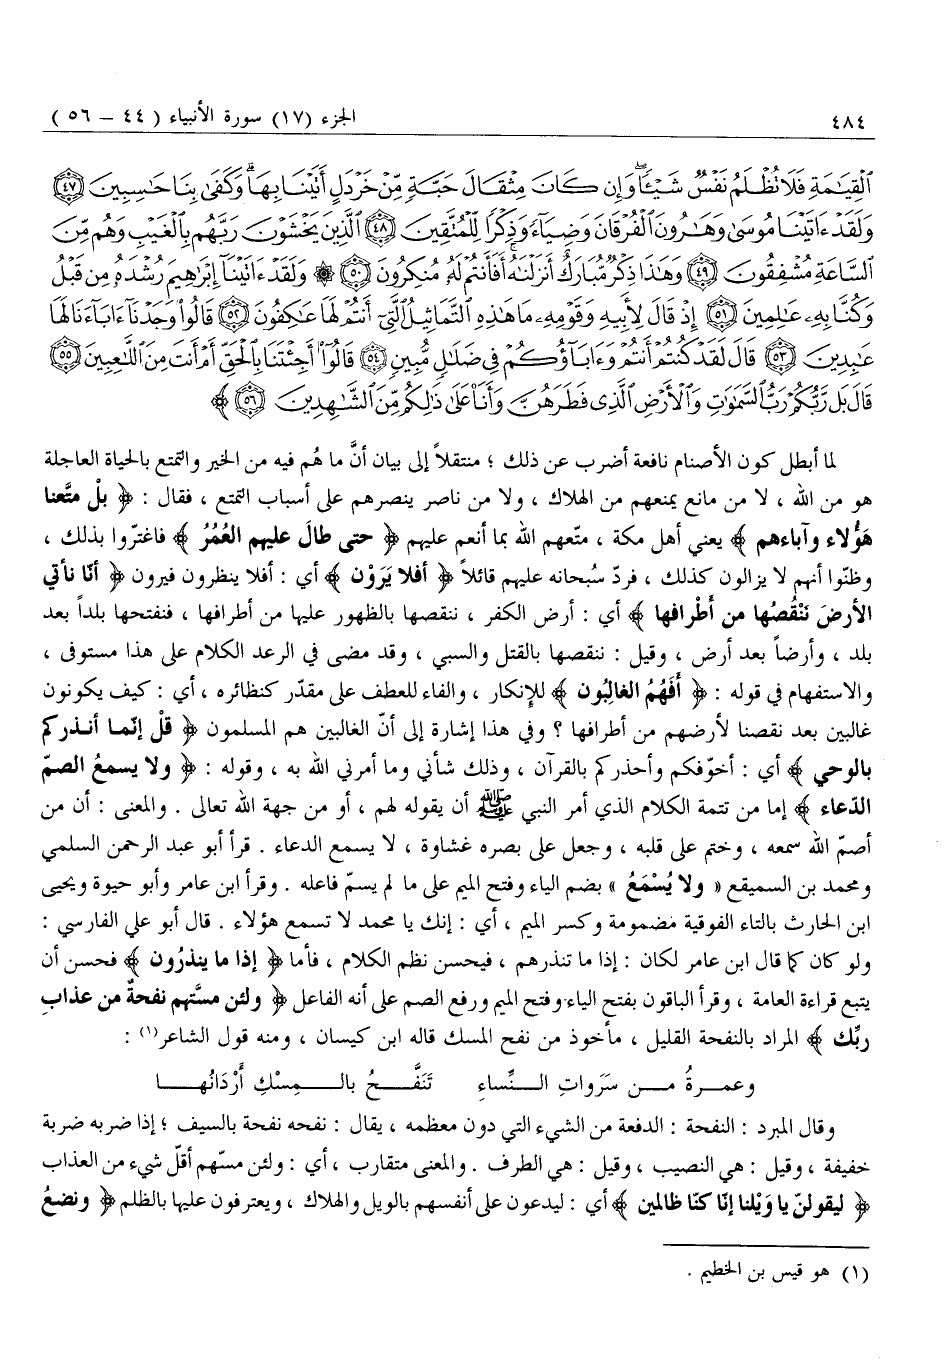 ٤٨٤ الجزء (١٧) سورة الأنبياء ( ٤٤ - ٥٦ )
ٱلْقِيَٰمَةِ فَلَا تُظْلَمُ نَفْسٌ شَيْـًٔا ۖ وَإِن كَانَ مِثْقَالَ حَبَّةٍ مِّنْ خَرْدَلٍ أَتَيْنَا بِهَا ۗ وَكَفَىٰ بِنَا حَٰسِبِينَ ﴿٤٧﴾
وَلَقَدْ ءَاتَيْنَا مُوسَىٰ وَهَٰرُونَ ٱلْفُرْقَانَ وَضِيَآءً وَذِكْرًا لِّلْمُتَّقِينَ ﴿٤٨﴾ ٱلَّذِينَ يَخْشَوْنَ رَبَّهُم بِٱلْغَيْبِ وَهُم مِّنَ
ٱلسَّاعَةِ مُشْفِقُونَ ﴿٤٩﴾ وَهَٰذَا ذِكْرٌ مُّبَارَكٌ أَنزَلْنَٰهُ ۚ أَفَأَنتُمْ لَهُۥ مُنكِرُونَ ﴿٥٠﴾ ۞ وَلَقَدْ ءَاتَيْنَآ إِبْرَٰهِيمَ رُشْدَهُۥ مِن قَبْلُ
وَكُنَّا بِهِۦ عَٰلِمِينَ ﴿٥١﴾ إِذْ قَالَ لِأَبِيهِ وَقَوْمِهِۦ مَا هَٰذِهِ ٱلتَّمَاثِيلُ ٱلَّتِىٓ أَنتُمْ لَهَا عَٰكِفُونَ ﴿٥٢﴾ قَالُوا۟ وَجَدْنَآ ءَابَآءَنَا لَهَا
عَٰبِدِينَ ﴿٥٣﴾ قَالَ لَقَدْ كُنتُمْ أَنتُمْ وَءَابَآؤُكُمْ فِى ضَلَٰلٍ مُّبِينٍ ﴿٥٤﴾ قَالُوٓا۟ أَجِئْتَنَا بِٱلْحَقِّ أَمْ أَنتَ مِنَ ٱللَّٰعِبِينَ ﴿٥٥﴾
قَالَ بَل رَّبُّكُمْ رَبُّ ٱلسَّمَٰوَٰتِ وَٱلْأَرْضِ ٱلَّذِى فَطَرَهُنَّ وَأَنَا۠ عَلَىٰ ذَٰلِكُم مِّنَ ٱلشَّٰهِدِينَ ﴿٥٦﴾ ﴾
لما أبطل كون الأصنام نافعة أضرب عن ذلك ؛ منتقلاً إلى بيان أنَّ ما هُم فيه من الخير والتمتع بالحياة العاجلة
هو من الله ، لا من مانع يمنعهم من الهلاك ، ولا من ناصر ينصرهم على أسباب التمتع ، فقال : ﴿ بلْ متَّعنا
هَؤُلاء وآباءهم ﴾ يعني أهل مكة ، متّعهم الله بما أنعم عليهم ﴿ حتى طالَ عليهم العُمُرُ ﴾ فاغترّوا بذلك ،
وظنّوا أنهم لا يزالون كذلك ، فردّ سُبحانه عليهم قائلاً ﴿ أفلا يَرَوْن ﴾ أي : أفلا ينظرون فيرون ﴿ أنّا نأتي
الأرضَ نَنْقُصُها من أَطْرافها ﴾ أي : أرض الكفر ، ننقصها بالظهور عليها من أطرافها ، فنفتحها بلداً بعد
بلد ، وأرضاً بعد أرض ، وقيل : ننقصها بالقتل والسبي ، وقد مضى في الرعد الكلام على هذا مستوفى ،
والاستفهام في قوله : ﴿ أَفَهُمُ الغالبُون ﴾ للإنكار ، والفاء للعطف على مقدّر كنظائره ، أي : كيف يكونون
غالبين بعد نقصنا لأرضهم من أطرافها ؟ وفي هذا إشارة إلى أنّ الغالبين هم المسلمون ﴿ قلْ إنّما أنذركم
بالوحي ﴾ أي : أخوّفكم وأحذركم بالقرآن ، وذلك شأني وما أمرني الله به ، وقوله : ﴿ ولا يسمعُ الصمّ
الدّعاء ﴾ إما من تتمة الكلام الذي أمر النبي ﷺ أن يقوله لهم ، أو من جهة الله تعالى . والمعنى : أن من
أصمّ الله سمعه ، وختم على قلبه ، وجعل على بصره غشاوة ، لا يسمع الدعاء . قرأ أبو عبد الرحمن السلمي
ومحمد بن السميقع « ولا يُسْمَعُ » بضم الياء وفتح الميم على ما لم يسمّ فاعله . وقرأ ابن عامر وأبو حيوة ويحيى
ابن الحارث بالتاء الفوقية مضمومة وكسر الميم ، أي : إنك يا محمد لا تسمع هؤلاء . قال أبو علي الفارسي :
ولو كان كما قال ابن عامر لكان : إذا ما تنذرهم ، فيحسن نظم الكلام ، فأما ﴿ إذا ما ينذرُون ﴾ فحسن أن
يتبع قراءة العامة ، وقرأ الباقون بفتح الياء وفتح الميم ورفع الصم على أنه الفاعل ﴿ ولئن مسَّتهم نفحةٌ من عذابِ
ربِّك ﴾ المراد بالنفحة القليل ، مأخوذ من نفح المسك قاله ابن كيسان ، ومنه قول الشاعر(١) :
وعمرةُ من سَرَواتِ النِّساءِ تَنَفَّحُ بالمِسْكِ أَرْدَانُها
وقال المبرد : النفحة : الدفعة من الشيء التي دون معظمه ، يقال : نفحه نفحة بالسيف ؛ إذا ضربه ضربة
خفيفة ، وقيل : هي النصيب ، وقيل : هي الطرف . والمعنى متقارب ، أي : ولئن مسّهم أقلّ شيء من العذاب
﴿ ليقولنّ يا وَيْلنا إنّا كنّا ظالمين ﴾ أي : ليدعون على أنفسهم بالويل والهلاك ، ويعترفون عليها بالظلم ﴿ ونضعُ
(١) هو قيس بن الخطيم .